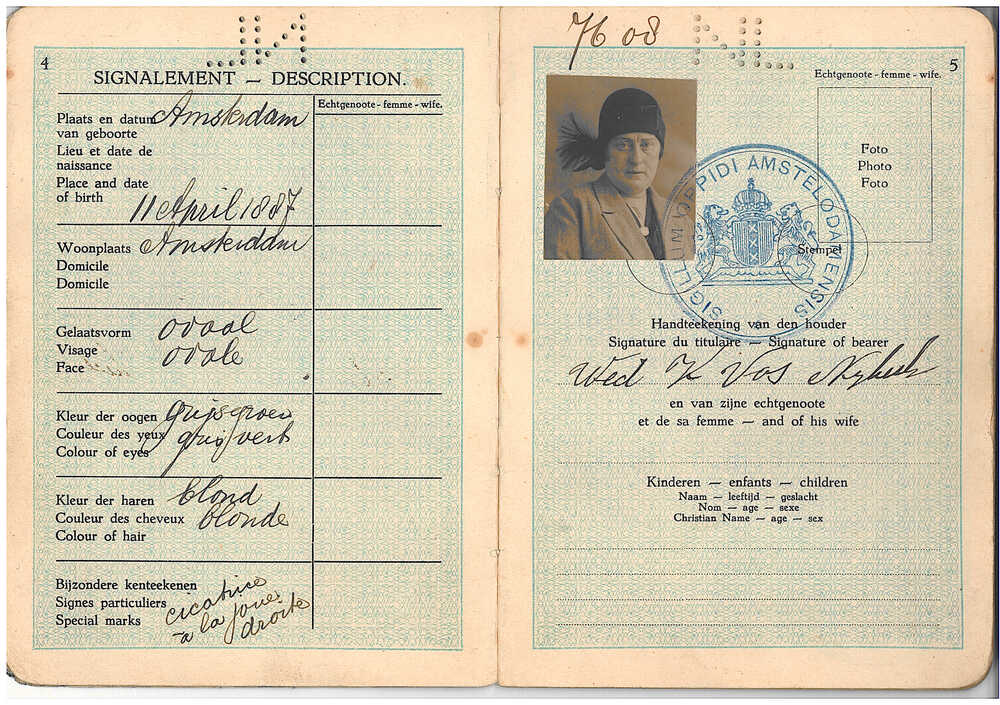 4
SIGNALEMENT — DESCRIPTION.
Echtgenoote - femme - wife.
Plaats en datum Amsterdam
van geboorte
Lieu et date de
naissance
Place and date
of birth 11 April 1887
Woonplaats Amsterdam
Domicile
Domicile
Gelaatsvorm ovaal
Visage ovale
Face
Kleur der oogen grijsgroen
Couleur des yeux gris vert
Colour of eyes
Kleur der haren blond
Couleur des cheveux blonde
Colour of hair
Bijzondere kenteekenen
Signes particuliers cicatrice
Special marks à la joue
droite
7608
NL
5
Echtgenoote - femme - wife.
Foto
Photo
Foto
Stempel
SIGILLUM OPPIDI AMSTELODAMENSIS
Handteekening van den houder
Signature du titulaire — Signature of bearer
Wed K Vos
en van zijne echtgenoote
et de sa femme — and of his wife
Kinderen — enfants — children
Naam — leeftijd — geslacht
Nom — age — sexe
Christian Name — age — sex